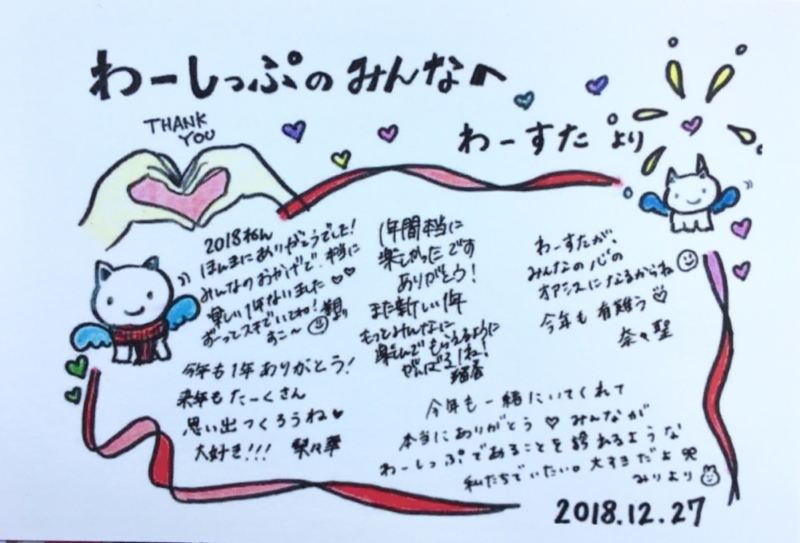 わーしっぷのみんなへ
わーすた より
THANK
YOU
2018ねん
ほんまにありがとうでした!
みんなのおかげで、本当に
楽しい1年ないました♡♡
ずーってスキでいてね!
すこ〜
1年間本当に
楽しかったです
ありがとう!
また新しい1年
もっとみんなに
楽しんでもらえるように
がんばるね!
瑠香
わーすたが、
みんなの心の
オアシスになるからね
今年も有難う♡
奈々聖
今年も1年ありがとう!
来年もたーくさん
思い出つくろうね♥
大好き!!! 梨々華
今年も一緒にいてくれて
本当にありがとう♡みんなが
わーしっぷであることを誇れるような
私たちでいたい。大すきだよ
みりより
2018.12.27